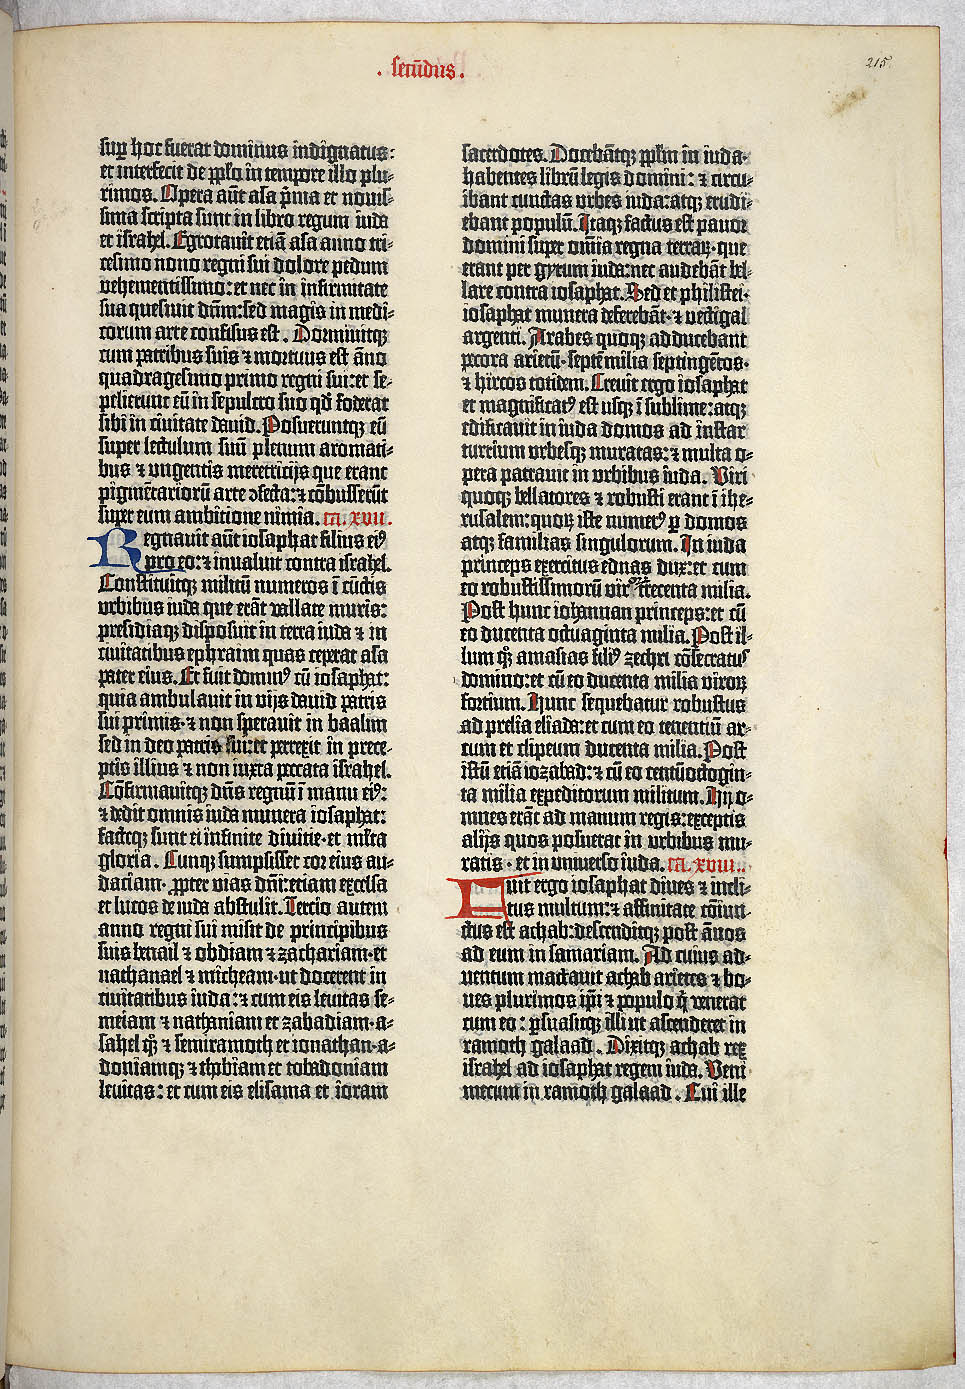 . secūdus .
215
sup̱ hoc fuerat dominus indignatus:
et interfecit de pp̱lo in tempore illo plu-
rimos. Opera aūt asa p̄ma et nouis-
sima scripta sunt in libro regum iuda
et israhel. Egrotauit etiā asa anno tri-
cesimo nono regni sui dolore pedum
vehementissimo: et nec in infirmitate
sua quesiuit dn̄m: sed magis in medi-
corum arte confisus est. Dormiuitq̧
cum patribus suis ⁊ mortuus est āno
quadragesimo primo regni sui: et se-
pelierunt eū in sepulcro suo qd̄ foderat
sibi in ciuitate dauid. Posueruntq̧ eū
super lectulum suū plenum aromati-
bus ⁊ ungentis meretricijs que erant
pigmētariorū arte ꝯfecta: ⁊ cōbusserūt
super eum ambitione nimia. ca. xvii.
Regnauit aūt iosaphat filius eiꝰ
pro eo: ⁊ inualuit contra israhel.
Constituitq̧ militū numeros ī cūctis
vrbibus iuda que erāt vallate muris:
presidiaq̧ disposuit in terra iuda ⁊ in
ciuitatibus ephraim quas ceperat asa
pater eius. Et fuit dominꝰ cū iosaphat:
quia ambulauit in vijs dauid patris
sui primis· ⁊ non sperauit in baalim
sed in deo patris sui: et perrexit in prece-
ptis illius ⁊ non iuxta peccata israhel.
Cōfirmauitq̧ dn̄s regnū ī manu eiꝰ:
⁊ dedit omnis iuda munera iosaphat:
facteq̧ sunt ei infinite diuitie· et ml̄ta
gloria. Cunq̧ sumpsisset cor eius au-
daciam· ꝓpter vias dn̄i: etiam excelsa
et lucos de iuda abstulit. Tercio autem
anno regni sui misit de principibus
suis benail ⁊ obdiam ⁊ zachariam· et
nathanael ⁊ micheam· ut docerent in
ciuitatibus iuda: ⁊ cum eis leuitas se-
meiam ⁊ nathaniam et zabadiam· a-
sahel q̊ꝫ ⁊ semiramoth et ionathan· a-
doniamq̧ ⁊ thobiam et tobadoniam
leuitas: et cum eis elisama et ioram
sacerdotes. Docebātq̧ pp̱lm in iuda·
habentes librū legis domini: ⁊ circu-
ibant cunctas vrbes iuda: atq̧ erudi-
ebant populū. Itaq̧ factus est pauor
domini super om̄ia regna terrarꝝ· que
erant per gyrum iuda: nec audebāt bel-
lare contra iosaphat. Sed et philistei·
iosaphat munera deferebāt· ⁊ uectigal
argenti. Arabes quoq̧ adducebant
pecora arietū· septē milia septingētos·
⁊ hircos totidem. Creuit ergo iosaphat
et magnificatꝰ est usq̧ ī sublime: atq̧
edificauit in iuda domos ad instar
turrium vrbesq̧ muratas: ⁊ multa o-
pera patrauit in vrbibus iuda. Viri
quoq̧ bellatores ⁊ robusti erant ī ihe-
rusalem: quorꝝ iste numerꝰ ꝑ domos
atq̧ familias singulorum. In iuda
princeps exercitus ednas dux: et cum
eo robustissimorū virorꝝ trecenta milia.
Post hunc iohannan princeps: et cū
eo ducenta octuaginta milia. Post il-
lum q̊ꝫ amasias filiꝰ zechri cōsecratus
domino: et cū eo ducenta milia virorꝝ
fortium. Hunc sequebatur robustus
ad prelia eliada: et cum eo tenentiū ar-
cum et clipeum ducenta milia. Post
istū etiā iozabad: ⁊ cū eo centūoctogin-
ta milia expeditorum militum. Hij o-
mnes erāt ad manum regis: exceptis
alijs quos posuerat in vrbibus mu-
ratis· et in universo iuda. ca. xviii.
Fuit ergo iosaphat diues ⁊ incli-
tus multum: ⁊ affinitate cōiun-
ctus est achab: descenditq̧ post ānos
ad eum in samariam. Ad cuius ad-
uentum mactauit achab arietes ⁊ bo-
ues plurimos ip̄i ⁊ populo q̄ venerat
cum eo: ꝑsuasitq̧ illi ut ascenderet in
ramoth galaad. Dixitq̧ achab rex
israhel ad iosaphat regem iuda. Veni
mecum in ramoth galaad. Cui ille